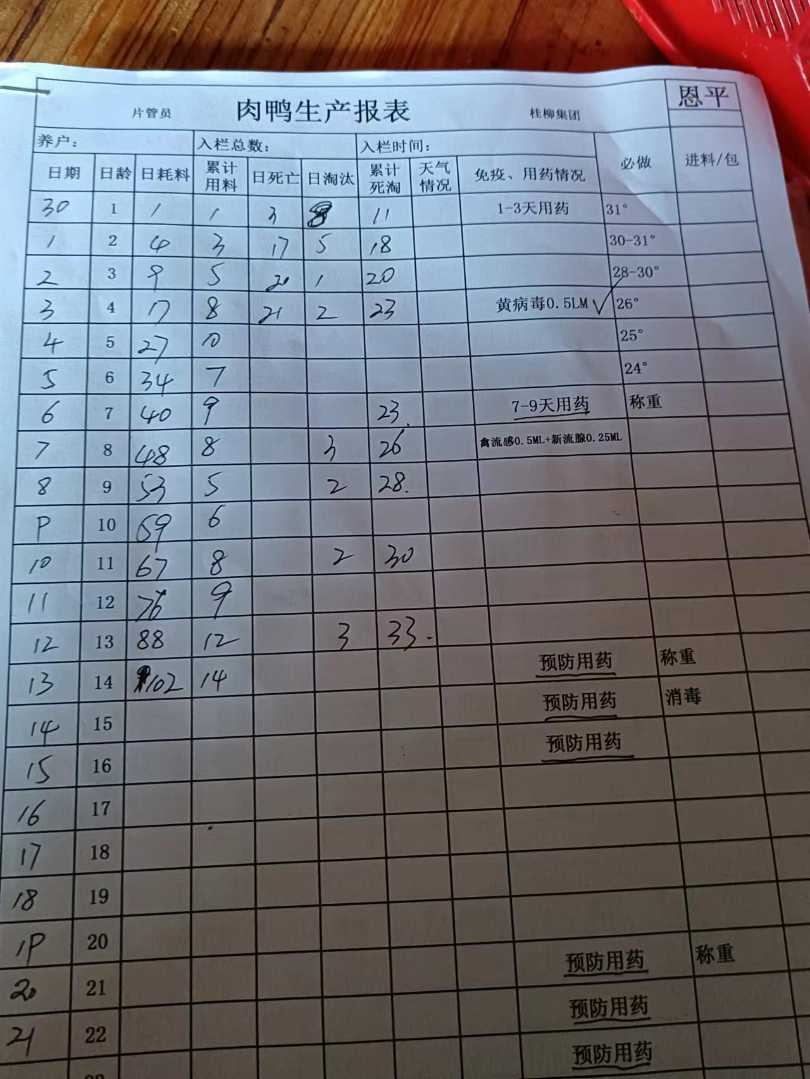 片管员 肉鸭生产报表 桂柳集团 恩平
养户： 入栏总数： 入栏时间： 必做 进料/包
日期 日龄 日耗料 累计用料 日死亡 日淘汰 累计死淘 天气情况 免疫、用药情况
30 1 1 1 3 8 11 1-3天用药 31°
1 2 4 3 17 5 18 30-31°
2 3 9 5 20 1 20 28-30°
3 4 17 8 21 2 23 黄病毒0.5LM ✓ 26°
4 5 27 10 25°
5 6 34 7 24°
6 7 40 9 23. 7-9天用药 称重
7 8 48 8 3 26 禽流感0.5ML+新流腺0.25ML
8 9 53 5 2 28.
9 10 59 6
10 11 67 8 2 30
11 12 76 9
12 13 88 12 3 33.
13 14 102 14 预防用药 称重
14 15 预防用药 消毒
15 16 预防用药
16 17
17 18
18 19
19 20
20 21 预防用药 称重
21 22 预防用药
预防用药